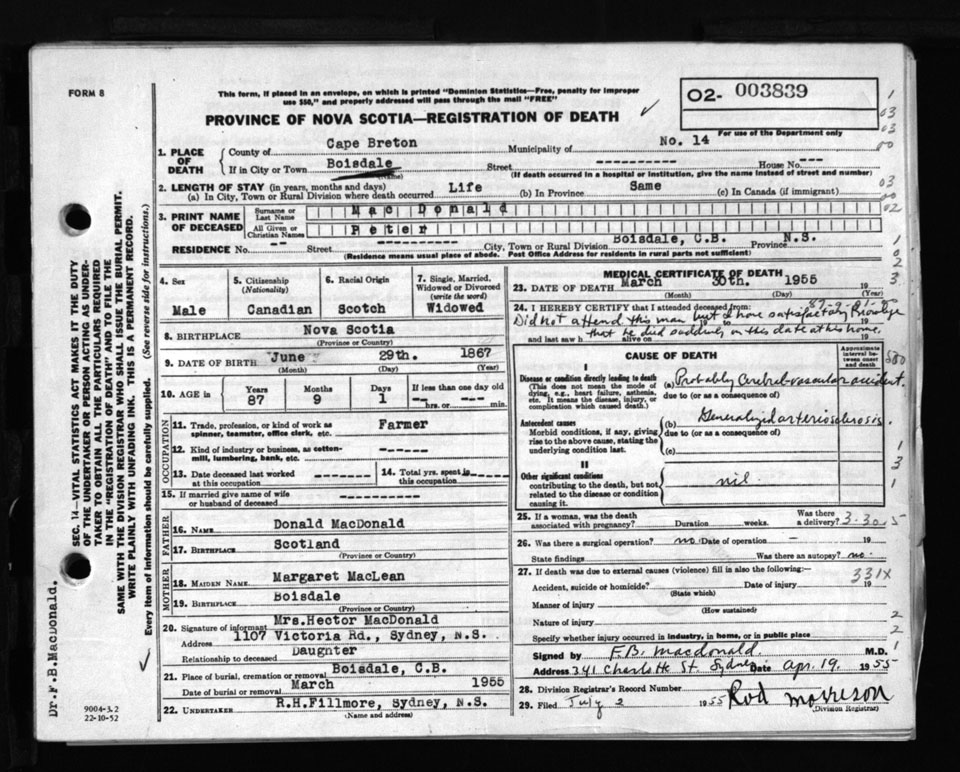 FORM 8
This form, if placed in an envelope, on which is printed "Dominion Statistics—Free, penalty for improper
use $50," and properly addressed will pass through the mail "FREE"
PROVINCE OF NOVA SCOTIA—REGISTRATION OF DEATH
02- 003839
For use of the Department only
1. PLACE OF DEATH
County of Cape Breton Municipality of No. 14
If in City or Town Boisdale Street ---------- House No. ---
(Name) (If death occurred in a hospital or institution, give the name instead of street and number)
2. LENGTH OF STAY (in years, months and days)
(a) In City, Town or Rural Division where death occurred Life (b) In Province Same (c) In Canada (if immigrant)
3. PRINT NAME OF DECEASED
Surname or Last Name Mac Donald
All Given or Christian Names Peter
RESIDENCE No. -- Street ---------- City, Town or Rural Division Boisdale, C.B. Province N.S.
(Residence means usual place of abode. Post Office Address for residents in rural parts not sufficient)
4. Sex
Male
5. Citizenship
(Nationality)
Canadian
6. Racial Origin
Scotch
7. Single, Married,
Widowed or Divorced
(write the word)
Widowed
8. BIRTHPLACE Nova Scotia
(Province or Country)
9. DATE OF BIRTH June 29th. 1867
(Month) (Day) (Year)
10. AGE in
Years Months Days If less than one day old
87 9 1 -- hrs. or -- min.
OCCUPATION
11. Trade, profession, or kind of work as
spinner, teamster, office clerk, etc. Farmer
12. Kind of industry or business, as cotton-
mill, lumbering, bank, etc. ----------
13. Date deceased last worked
at this occupation -----
14. Total yrs. spent in
this occupation -----
15. If married give name of wife
or husband of deceased ----------
FATHER
16. NAME Donald MacDonald
17. BIRTHPLACE Scotland
(Province or Country)
MOTHER
18. MAIDEN NAME Margaret MacLean
19. BIRTHPLACE Boisdale
(Province or Country)
20. Signature of informant Mrs.Hector MacDonald
Address 1107 Victoria Rd., Sydney, N.S.
Relationship to deceased Daughter
21. Place of burial, cremation or removal Boisdale, C.B.
Date of burial or removal March 1955
22. UNDERTAKER R.H.Fillmore, Sydney, N.S.
(Name and address)
MEDICAL CERTIFICATE OF DEATH
23. DATE OF DEATH March 30th. 1955 19
(Month) (Day) (Year)
24. I HEREBY CERTIFY that I attended deceased from:
87-9-01
Did not attend this man but I have satisfactory knowledge
that he died suddenly on this date at his home.
and last saw h alive on 19
CAUSE OF DEATH
Approximate
interval be-
tween onset
and death
I
Disease or condition directly leading to death
(This does not mean the mode of
dying, e.g., heart failure, asthenia,
etc. It means the disease, injury, or
complication which caused death.)
(a) Probably Cerebral vascular accident.
due to (or as a consequence of)
Antecedent causes
Morbid conditions, if any, giving
rise to the above cause, stating the
underlying condition last.
(b) Generalized arteriosclerosis.
due to (or as a consequence of)
(c)
II
Other significant conditions
contributing to the death, but not
related to the disease or condition
causing it.
nil.
25. If a woman, was the death
associated with pregnancy? Duration weeks. Was there
a delivery? 3-30-5
26. Was there a surgical operation? no Date of operation — 19
State findings Was there an autopsy? no.
27. If death was due to external causes (violence) fill in also the following:—
331X
Accident, suicide or homicide? Date of injury 19
(State which)
Manner of injury
(How sustained)
Nature of injury
Specify whether injury occurred in industry, in home, or in public place
Signed by F.B. Macdonald. M.D.
Address 341 Charlotte St. Sydney Date Apr. 19. 1955
28. Division Registrar's Record Number
29. Filed July 2 1955 Rod Morrison
(Division Registrar)
SEC. 14—VITAL STATISTICS ACT MAKES IT THE DUTY
OF THE UNDERTAKER OR PERSON ACTING AS UNDER-
TAKER TO OBTAIN ALL THE PARTICULARS REQUIRED
IN THE "REGISTRATION OF DEATH" AND TO FILE THE
SAME WITH THE DIVISION REGISTRAR WHO SHALL ISSUE THE BURIAL PERMIT.
WRITE PLAINLY WITH UNFADING INK. THIS IS A PERMANENT RECORD.
Every item of information should be carefully supplied. (See reverse side for instructions.)
Dr.F.B.MacDonald.
9004-3.2
22-10-52